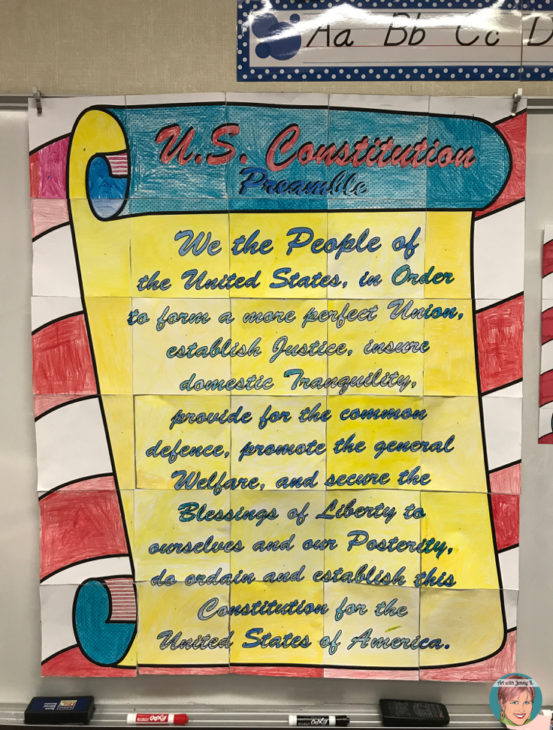 Aa Bb Cc D
U.S. Constitution
Preamble
We the People of
the United States, in Order
to form a more perfect Union,
establish Justice, insure
domestic Tranquility,
provide for the common
defence, promote the general
Welfare, and secure the
Blessings of Liberty to
ourselves and our Posterity,
do ordain and establish this
Constitution for the
United States of America.
EXPO
EXPO
Art with Jenny K.